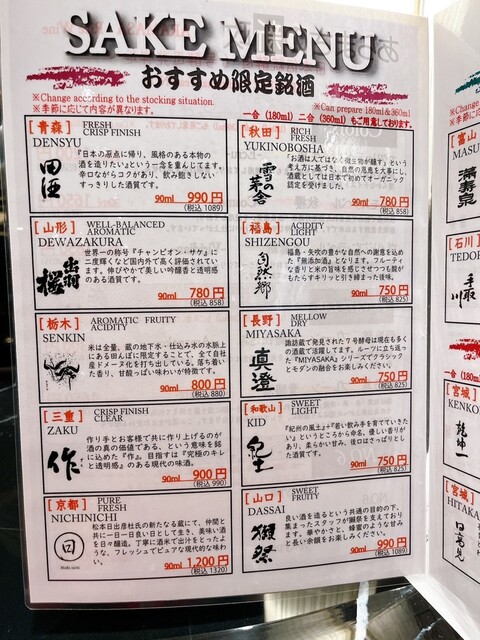 SAKE MENU
おすすめ限定銘酒
※Change according to the stocking situation.
※季節に応じて内容が異なります。
※Can prepare 180ml&360ml
一合（180ml）二合（360ml）もご用意しております。
[青森] FRESH
CRISP FINISH
DENSYU
田酒
『日本の原点に帰り、風格のある本物の
酒を造りたい』という一念を重んじてます。
辛口ながらコクがあり、飲み飽きしない
すっきりした酒質です。
90ml 990円
(税込1089)
[山形] WELL-BALANCED
AROMATIC
DEWAZAKURA
出羽桜
世界一の称号『チャンピオン・サケ』に
二度輝くなど国内外で高く評価されていま
す。伸びやかで美しい吟醸香と透明感
のある酒質です。
90ml 780円
(税込858)
[栃木] AROMATIC FRUITY
ACIDITY
SENKIN
米は全量、蔵の地下水・仕込み水の水脈上
にある田んぼに限定することで、全て自社
産ドメーヌ化を打ち出している。落ち着い
た香り、甘酸っぱい味わいが特徴です。
90ml 800円
(税込880)
[三重] CRISP FINISH
CLEAR
ZAKU
作
作り手とお客様で共に作り上げるのが
酒の真の価値である、という意味を銘
に込めた『作』。目指すは『究極のキレ
と透明感』のある現代の味酒。
90ml 900円
(税込990)
[京都] PURE
FRESH
NICHINICHI
日
松本日出彦杜氏の新たなる蔵にて、仲間と
共に一日一日良い日として生き、美味い酒
を日々醸造。丁寧に酒米で出汁をとったよ
うな、フレッシュでピュアな現代的な味わ
い。
90ml 1,200円
(税込1320)
[秋田] RICH
FRESH
YUKINOBOSHA
雪の茅舎
「お酒は人ではなく微生物が醸す」という
考え方に基づき、自然の恩恵を大事にし、
酒蔵としては日本で初めてオーガニック
認定を受けました。
90ml 780円
(税込858)
[福島] ACIDITY
LIGHT
SHIZENGOU
自然郷
福島・矢吹の豊かな自然への謝意を込め
た『無添加酒』となります。フルーティ
な香りと米の旨味を感じさせつつも酸が
もたらすキリッと引き締まった味です。
90ml 750円
(税込825)
[長野] MELLOW
DRY
MIYASAKA
真澄
諏訪蔵で発見された７号酵母は現在も多く
の酒蔵で活躍してます。ルーツに立ち返っ
た『MIYASAKA』シリーズでクラシック
とモダンの融合をお楽しみください。
90ml 750円
(税込825)
[和歌山] SWEET
LIGHT
KID
紀土
『紀州の風土』＋『若い飲み手を育てていきた
い』というところから命名。優しい香りが
あり、柔らかい甘み。後口はさっぱりとし
た酒質です。
90ml 750円
(税込825)
[山口] SWEET
FRUITY
DASSAI
獺祭
良い酒を造るという共通の目的の下、
集まったスタッフが醸祭を支えており
ます。華やかさと、蜂蜜のような甘み
と長い余韻をお楽しみください。
90ml 990円
(税込1089)
[富山
MASU
満寿泉
[石川
TEDOR
手取川
[宮城
KENKO
乾坤一
[宮城
HITAKA
日高見